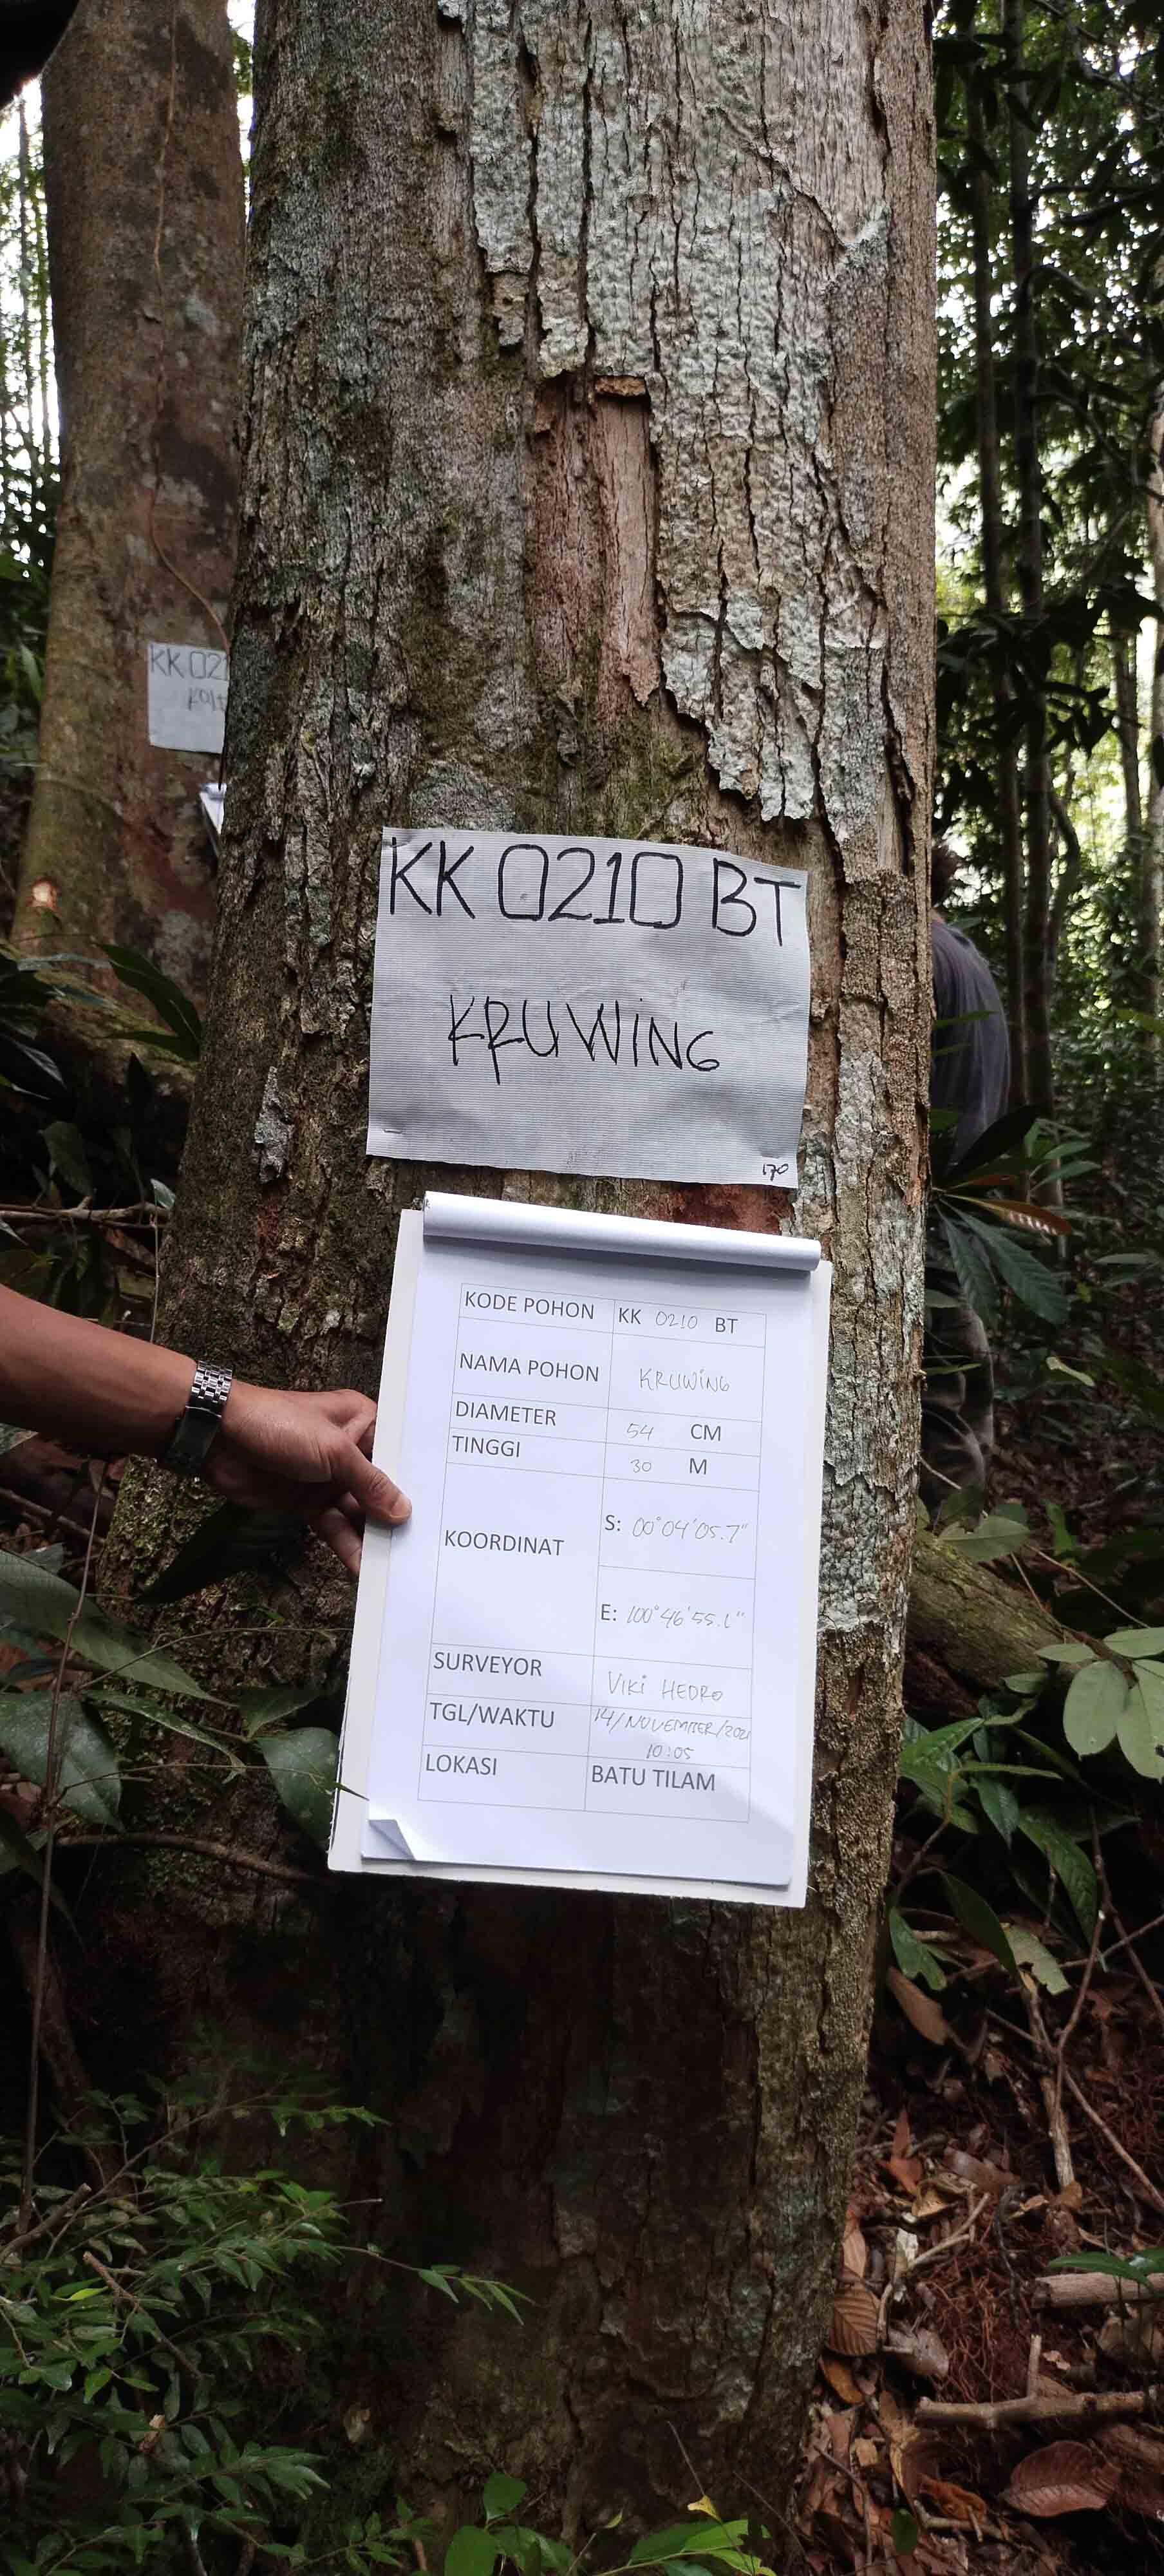 KK 021
KK 0210 BT
KRUWING
170
KODE POHON KK 0210 BT
NAMA POHON KRUWING
DIAMETER 54 CM
TINGGI 30 M
KOORDINAT
S: 00°04'05.7"
E: 100°46'55.1"
SURVEYOR VIKI HEDRO
TGL/WAKTU 14/NOVEMBER/202
10:05
LOKASI BATU TILAM